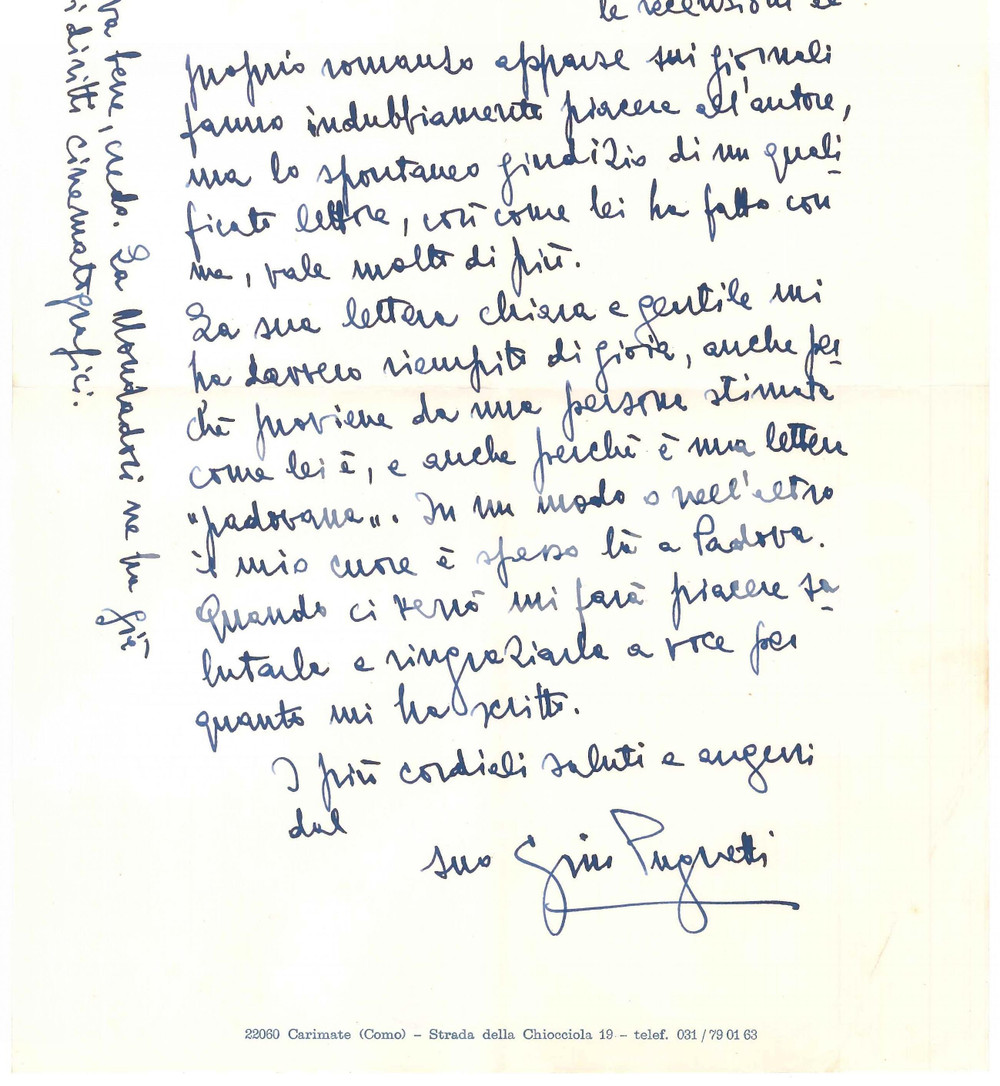 le recensioni al
proprio romanzo apparse sui giornali
fanno indubbiamente piacere all'autore,
ma lo spontaneo giudizio di un quali
ficato lettore, così come lei ha fatto con
me, vale molto di più.
La sua lettera chiara e gentile mi
ha davvero riempito di gioia, anche per
chè proviene da una persona stimata
come lei è, e anche perchè è una lettera
"padovana". In un modo o nell'altro
il mio cuore è spesso là a Padova.
Quando ci verrò mi farà piacere sa
lutarla e ringraziarla a voce per
quanto mi ha scritto.
I più cordiali saluti e auguri
dal
suo Gino Pugnetti
va bene, credo. La Mondadori ne ha già
i diritti cinematografici.
22060 Carimate (Como) – Strada della Chiocciola 19 – telef. 031/79 01 63